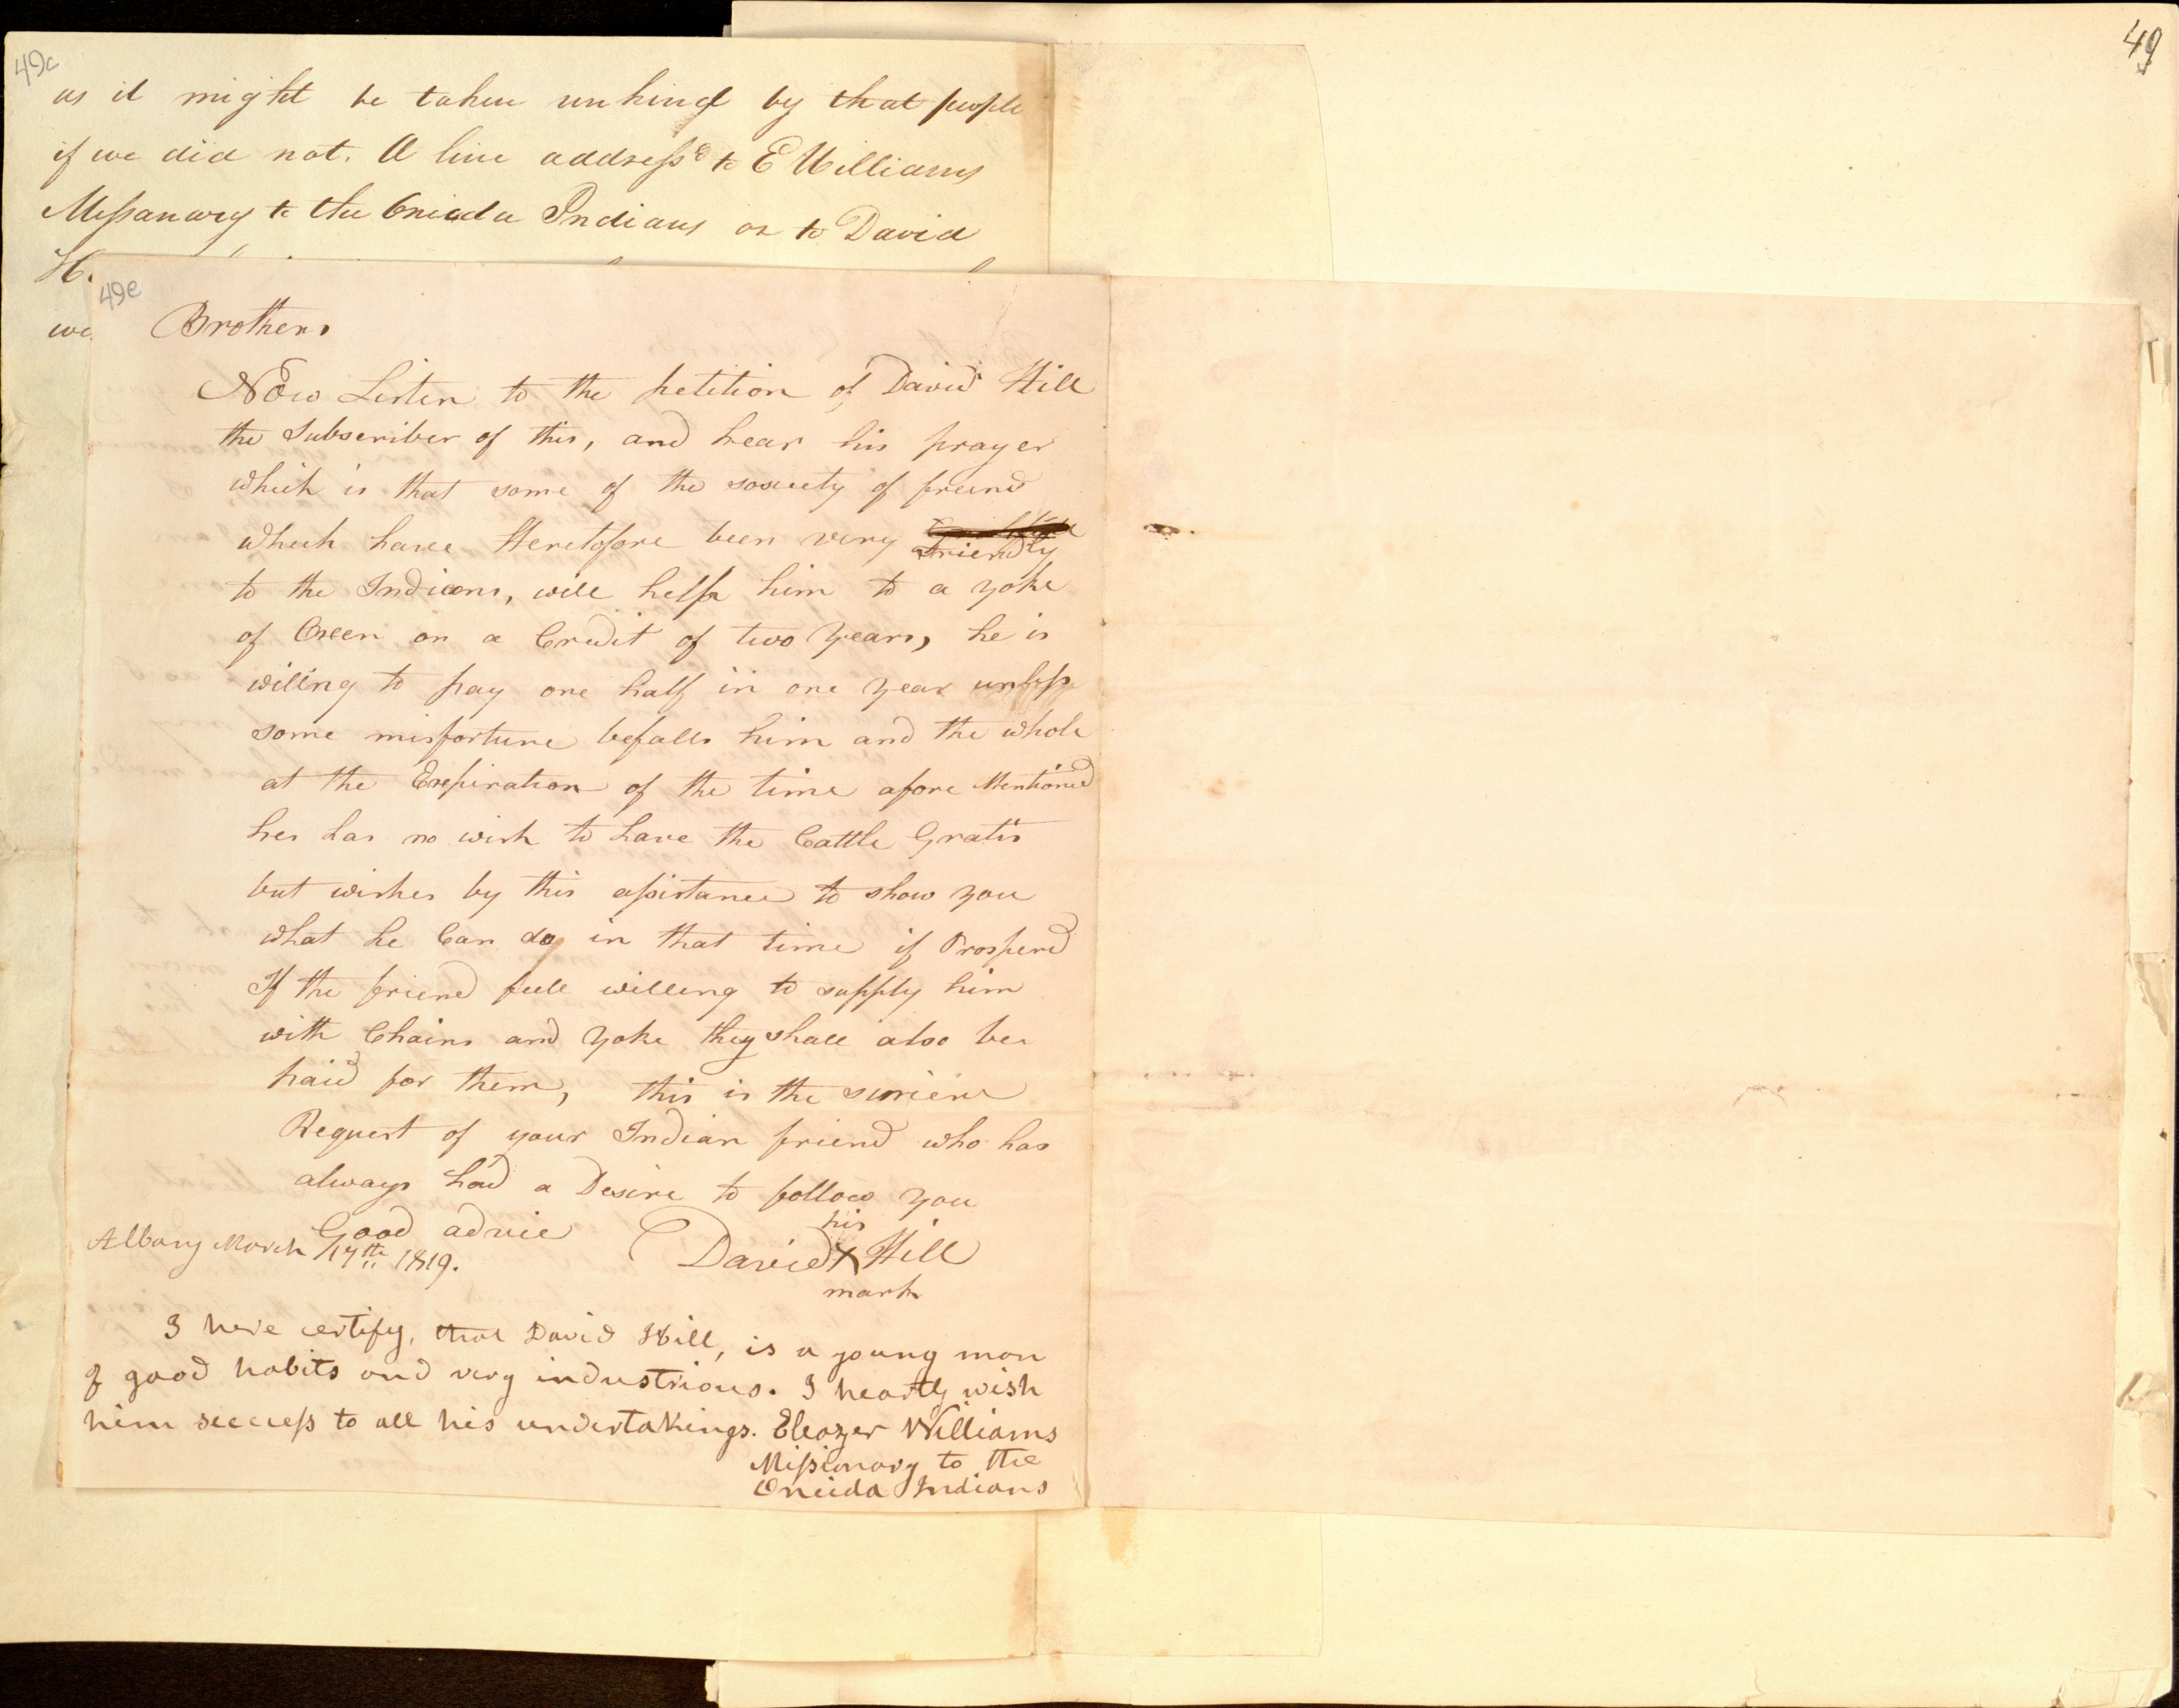 49
49c
as it might be taken unkind by that people
if we did not. A line address'd to E Williams
Messanary to the Oneida Indians or to David
H.
we
49e
Brothers
Now Listen to the petition of David Hill
the Subscriber of this, and hear his prayer
which is that some of the society of freind
which have Heretofore been very friendly
to the Indians, will help him to a yoke
of Oxen on a Credit of two Years, he is
willing to pay one half in one Year unless
some misfortune befalls him and the whole
at the Expiration of the time afore Mentioned
hes has no wish to have the Cattle Gratis
but wishes by this assistance to show you
what he Can do in that time if Prosperd
If the friend feel willing to supply him
with Chains and Yoke they shall also be
paid for them, this is the sincere
Request of your Indian friend who has
always had a Desire to follow you
Good advice
his
David X Hill
mark
Albany March 17th 1819.
I here certify, that David Hill, is a young man
of good habits and very industrious. I heartly wish
him seccess to all his undertakings. Eleazer Williams
Missionary to the
Oneida Indians